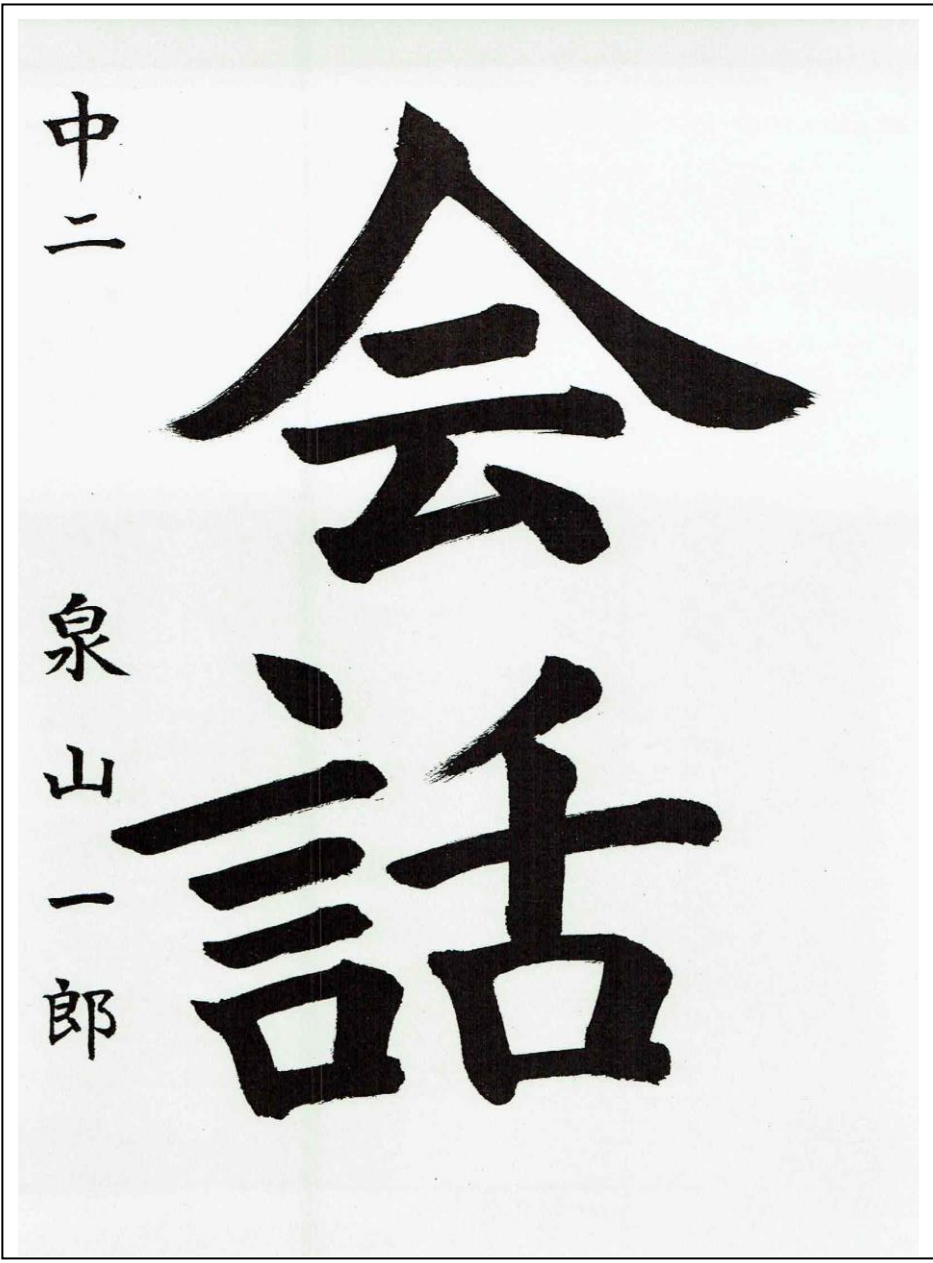 会話
中二 泉山一郎